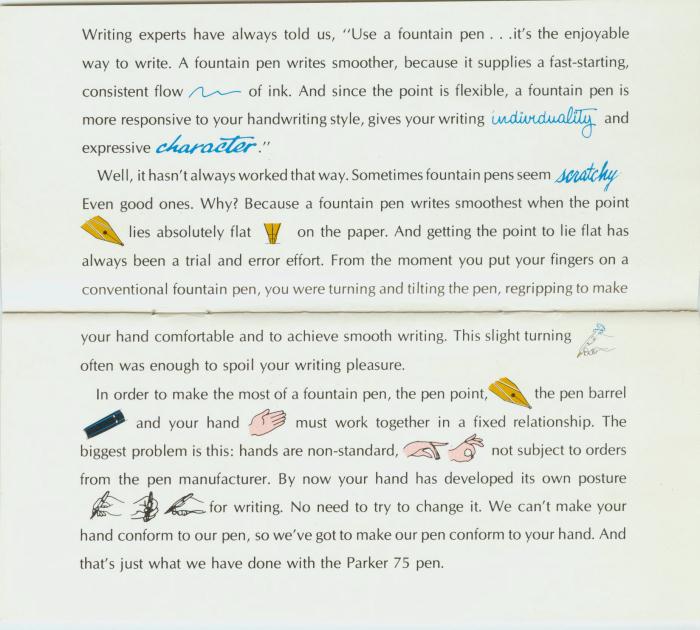 Writing experts have always told us, "Use a fountain pen . . .it's the enjoyable
way to write. A fountain pen writes smoother, because it supplies a fast-starting,
consistent flow of ink. And since the point is flexible, a fountain pen is
more responsive to your handwriting style, gives your writing individuality and
expressive character."
Well, it hasn't always worked that way. Sometimes fountain pens seem scratchy
Even good ones. Why? Because a fountain pen writes smoothest when the point
lies absolutely flat on the paper. And getting the point to lie flat has
always been a trial and error effort. From the moment you put your fingers on a
conventional fountain pen, you were turning and tilting the pen, regripping to make
your hand comfortable and to achieve smooth writing. This slight turning
often was enough to spoil your writing pleasure.
In order to make the most of a fountain pen, the pen point, the pen barrel
and your hand must work together in a fixed relationship. The
biggest problem is this: hands are non-standard, not subject to orders
from the pen manufacturer. By now your hand has developed its own posture
for writing. No need to try to change it. We can't make your
hand conform to our pen, so we've got to make our pen conform to your hand. And
that's just what we have done with the Parker 75 pen.